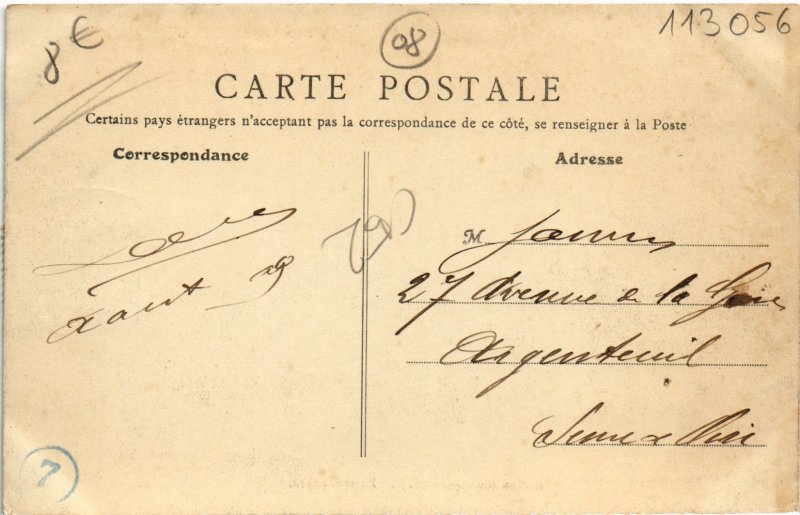 8€
08
113056
CARTE POSTALE
Certains pays étrangers n'acceptant pas la correspondance de ce côté, se renseigner à la Poste
Correspondance
Adresse
M
27 Avenue de la Gare
Argenteuil
Seine & Oise
7